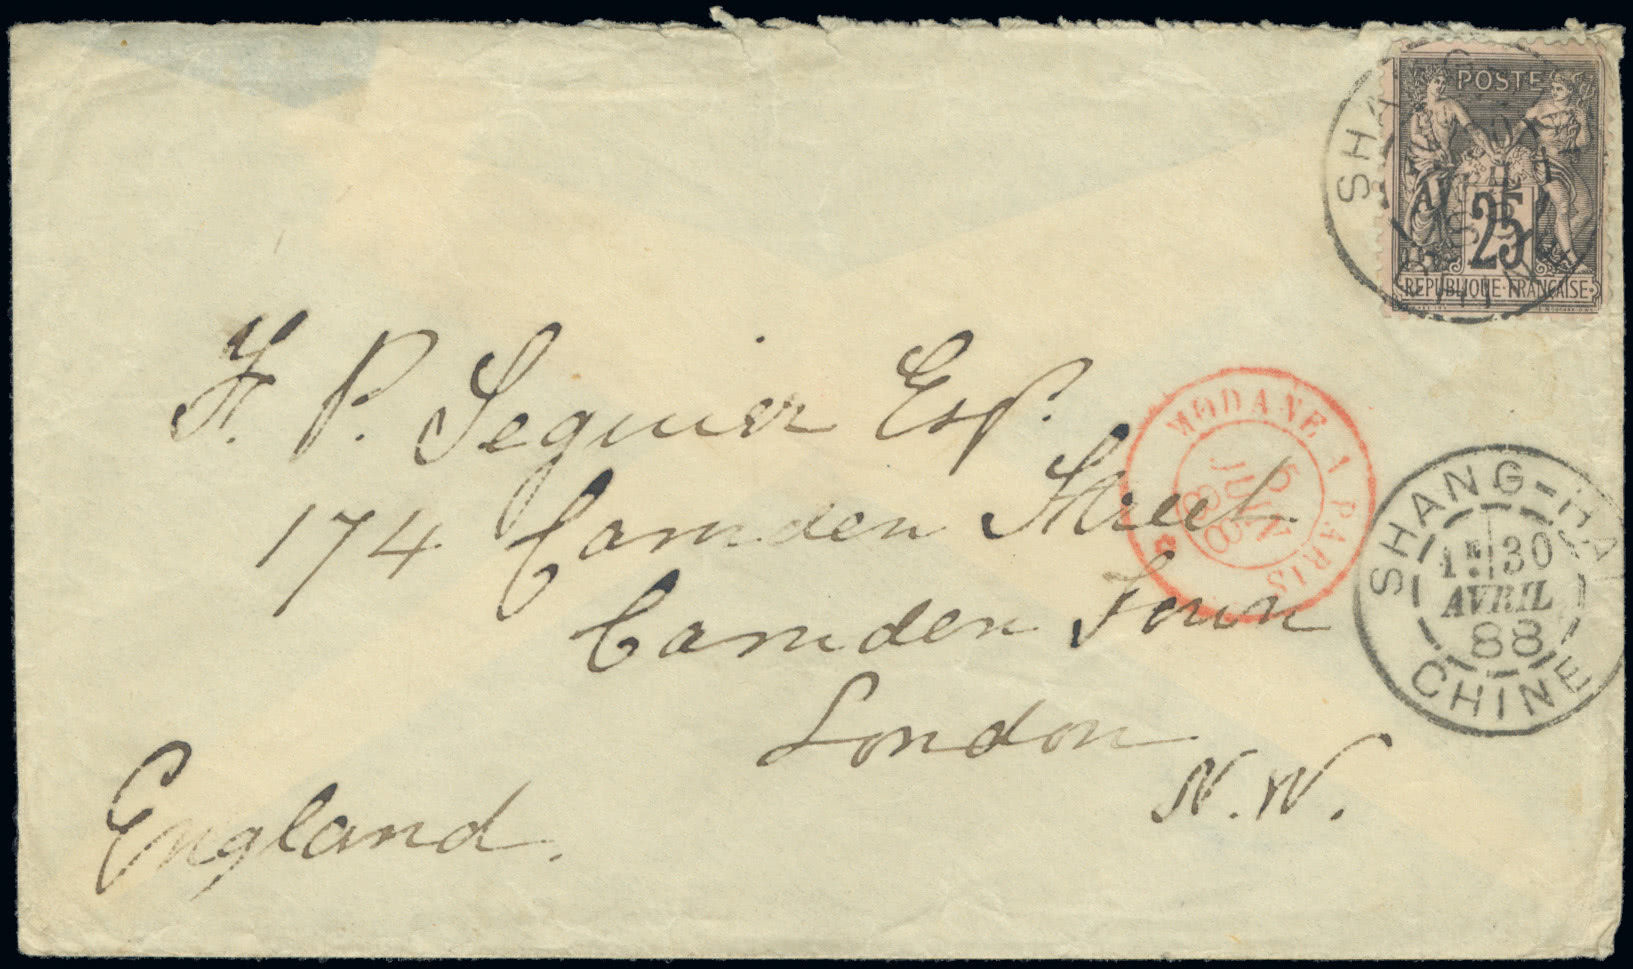 POSTE
25
REPUBLIQUE FRANÇAISE
SHA
F. P. Seguier Esq.
174 Camden Street
Camden Town
London
N.W.
England.
MODANE A PARIS
5
JUIN
88
SHANG-HAI
1E 30
AVRIL
88
CHINE